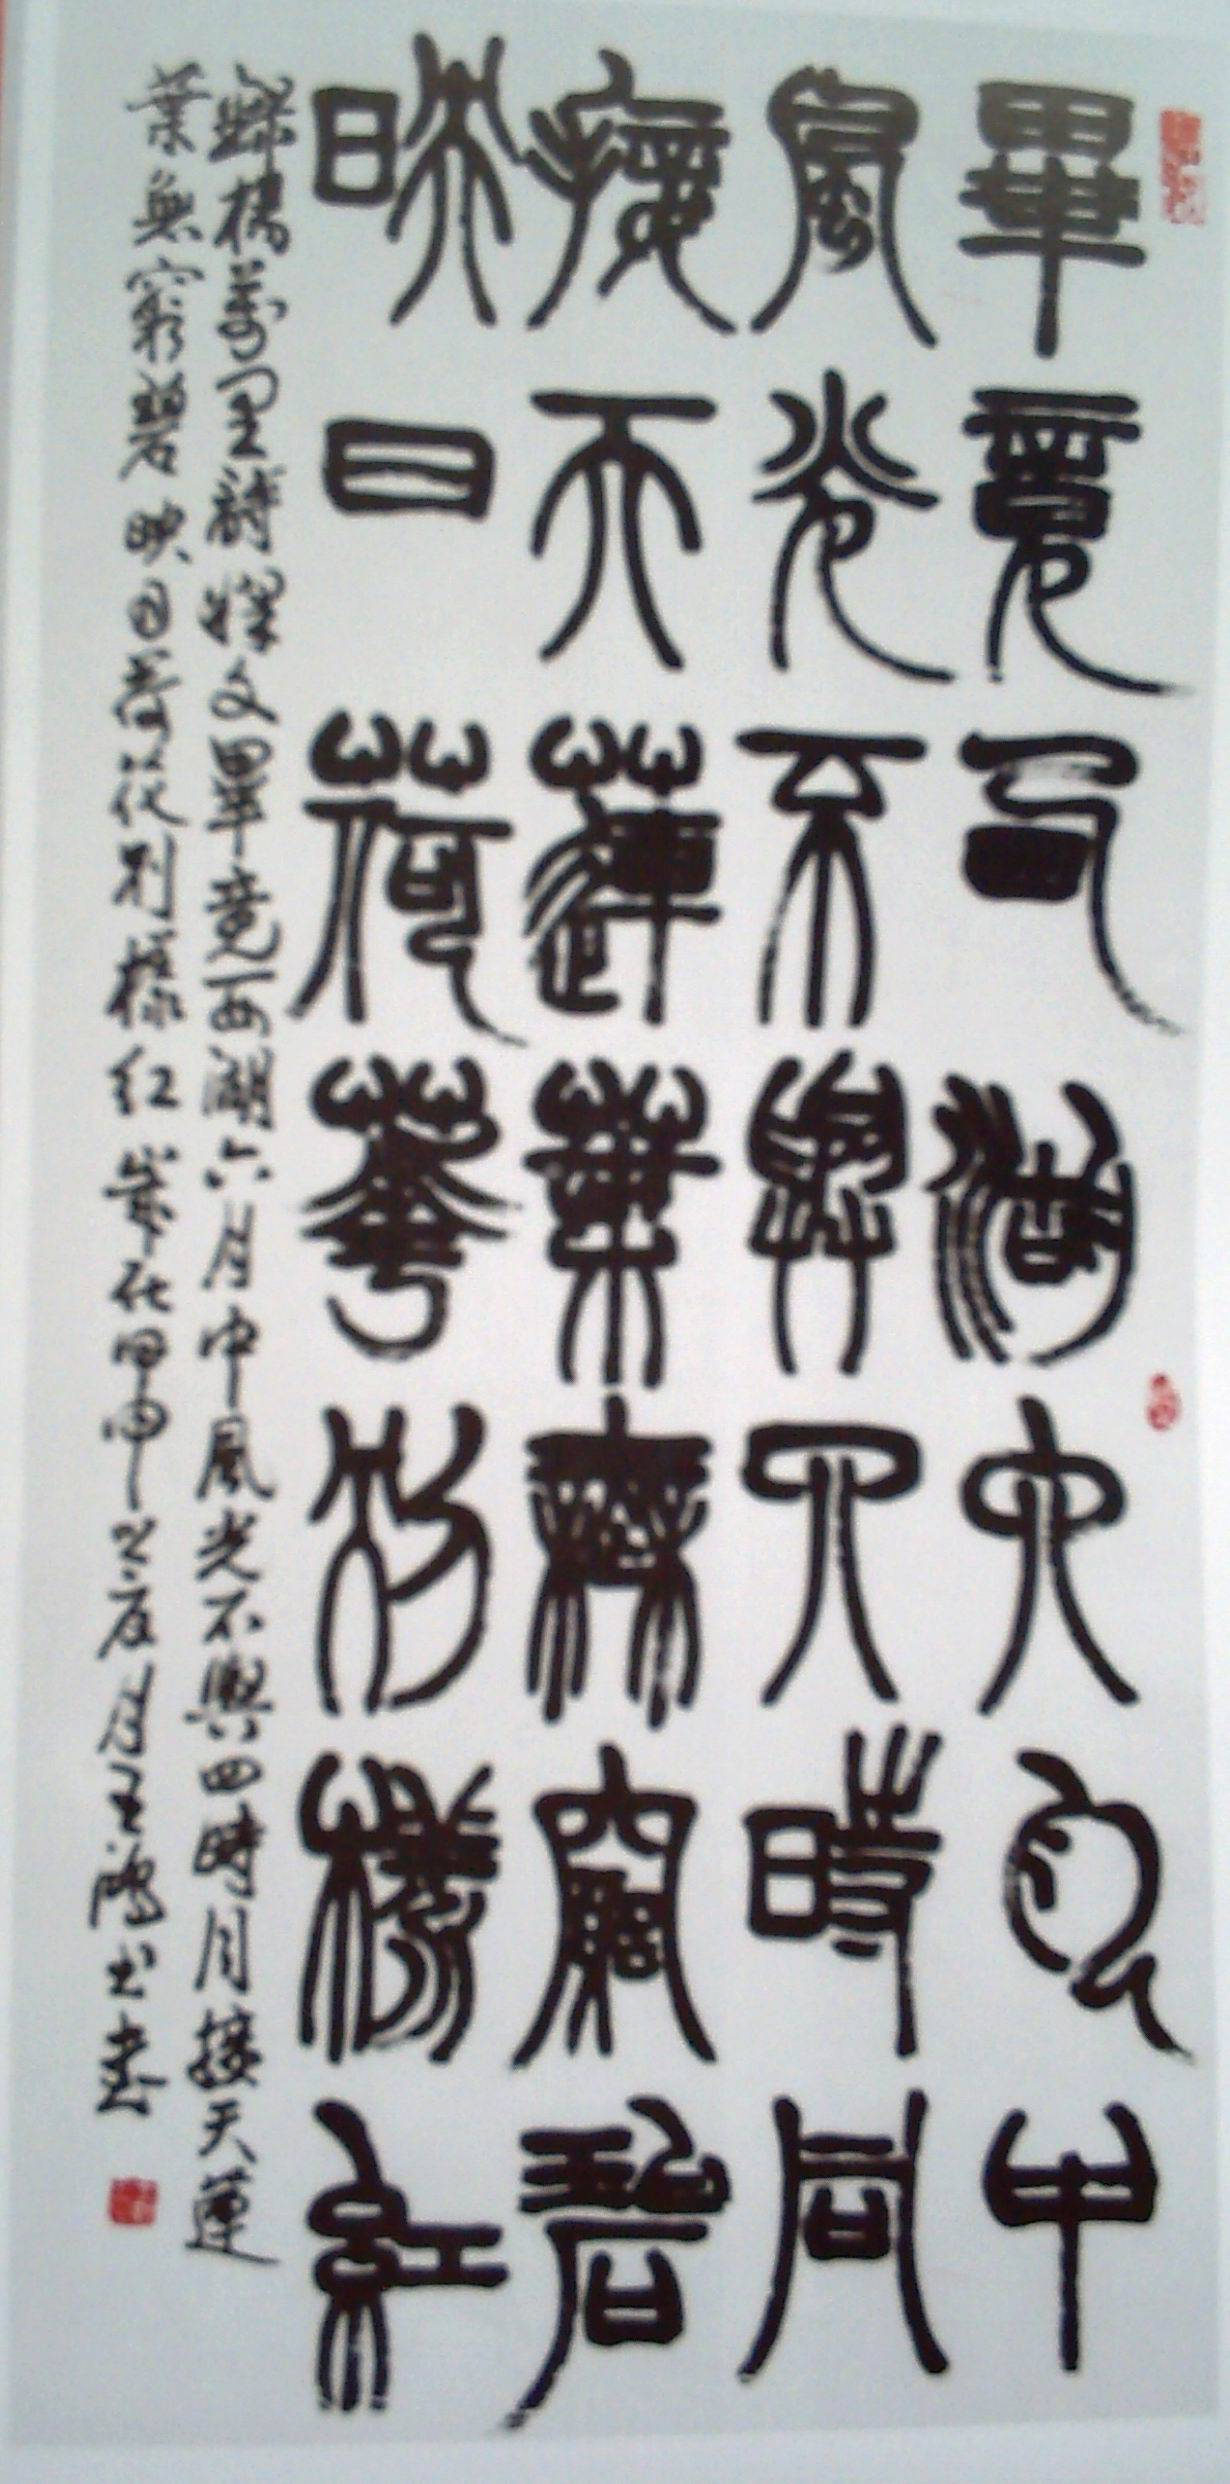 畢竟西湖六月中
風光不與四時同
接天蓮葉無窮碧
映日荷華別樣紅
錄楊萬里詩釋文畢竟西湖六月中風光不與四時月接天蓮
葉無窮碧映日荷花別樣紅歲在甲申之夏月王鴻書